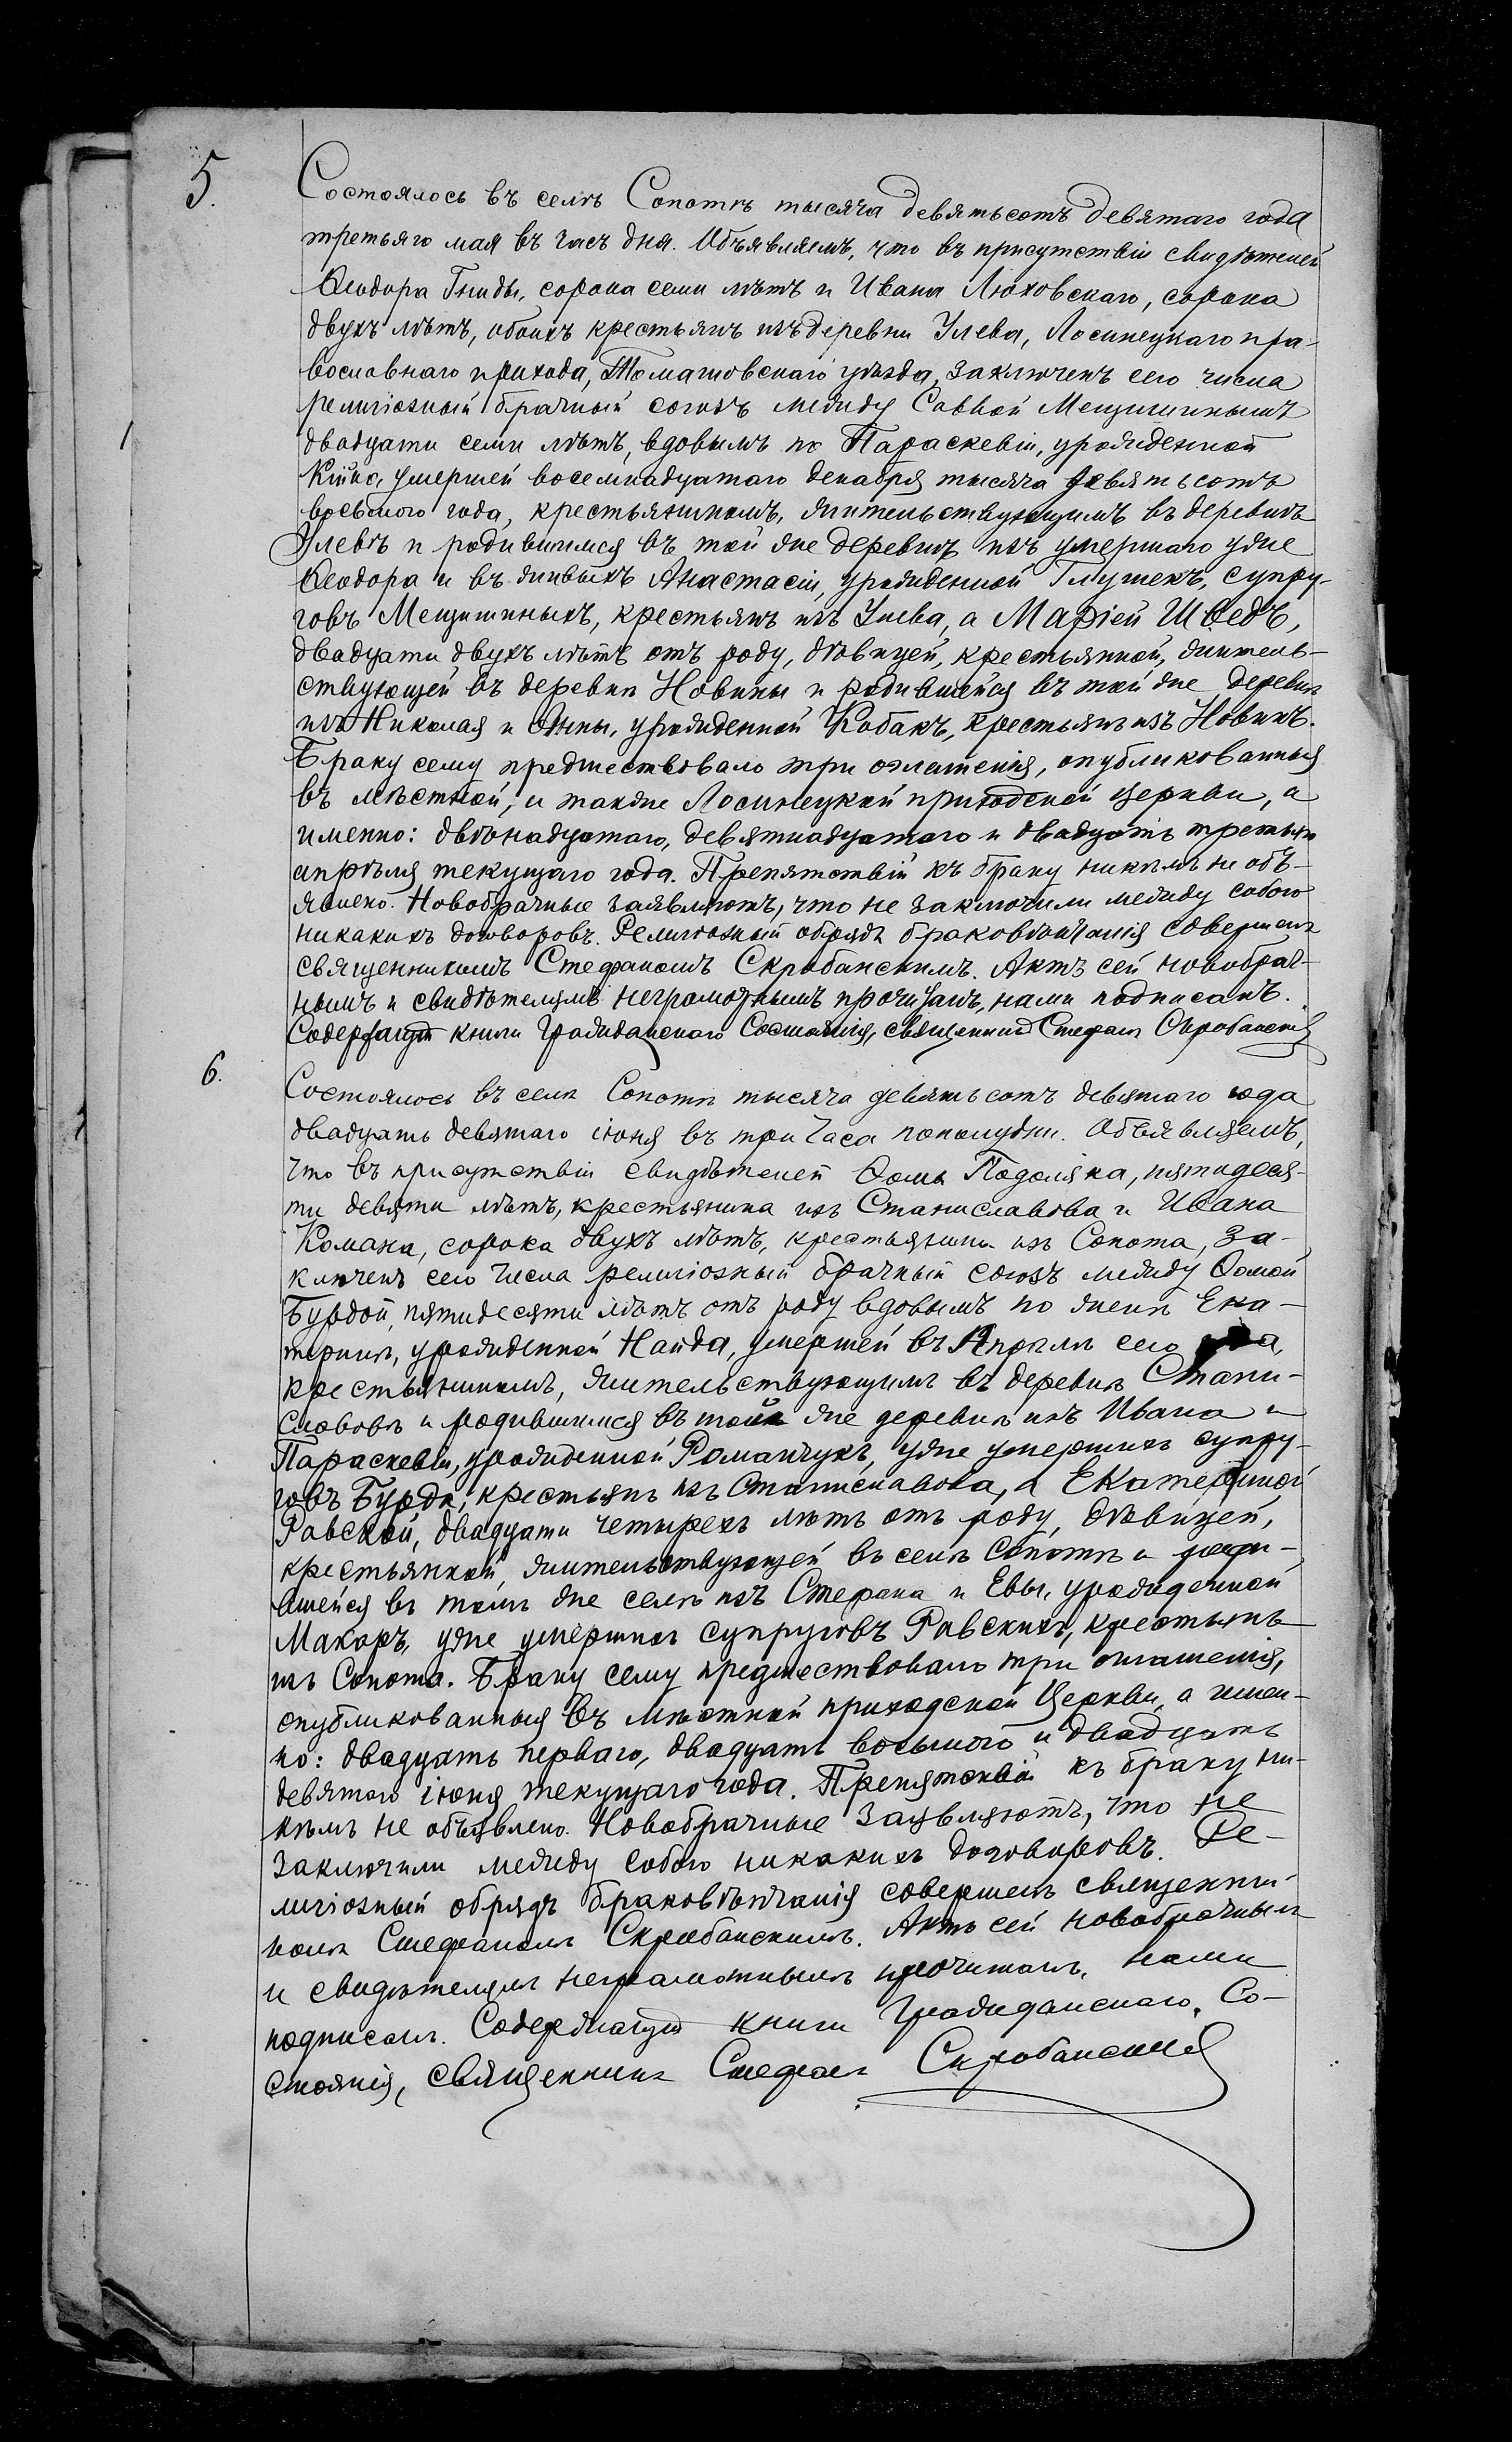 5.
Состоялось въ селѣ Сопотѣ тысяча девятьсотъ девятаго года
третьяго мая въ часъ дня. Объявляемъ, что въ присутствіи свидѣтелей
Ѳеодора Гниды, сорока семи лѣтъ и Ивана Люховскаго, сорока
двухъ лѣтъ, обоихъ крестьянъ изъ деревни Улева, Лосинецкаго пра-
вославнаго прихода, Томашовскаго уѣзда, заключенъ сего числа
религіозный брачный союзъ между Саввой Мещишинымъ
двадцати семи лѣтъ, вдовымъ по Параскевіи, урожденной
умершей восемнадцатаго декабря тысяча девятьсотъ
восьмого года, крестьяниномъ, жительствующимъ въ деревнѣ
Улевѣ и родившимся въ той же деревнѣ изъ умершаго уже
Ѳеодора и въ живыхъ Анастасіи, урожденной Глушекъ, супру-
говъ Мещишиныхъ, крестьянъ изъ Улева, а Маріей Шведъ,
двадцати двухъ лѣтъ отъ роду, дѣвицей, крестьянкой, житель-
ствующей въ деревнѣ Новины и родившейся въ той же деревнѣ
изъ Николая и Анны, урожденной Кобакъ, крестьянъ изъ Новинъ.
Браку сему предшествовало три оглашенія, опубликованныя
въ мѣстной, и также Лосинецкой приходской церкви, а
именно: двѣнадцатаго, девятнадцатаго и двадцать третьяго
апрѣля текущаго года. Препятствій къ браку никѣмъ не объ-
явлено. Новобрачные заявляютъ, что не заключили между собою
никакихъ договоровъ. Религіозный обрядъ браковѣнчанія совершенъ
священникомъ Стефаномъ Скробанскимъ. Актъ сей новобрач-
нымъ и свидѣтелямъ неграмотнымъ прочитанъ, нами подписанъ.
Содержащій книги Гражданскаго Состоянія, священникъ Стефанъ Скробанскій
6.
Состоялось въ селѣ Сопотѣ тысяча девятьсотъ девятаго года
двадцать девятаго іюня въ три часа пополудни. Объявляемъ,
что въ присутствіи свидѣтелей Ѳомы Подоляка, пятидеся-
ти девяти лѣтъ, крестьянина изъ Станиславова и Ивана
Комана, сорока двухъ лѣтъ, крестьянина изъ Сопота, за-
ключенъ сего числа религіозный брачный союзъ между Ѳомой
Бурдой, пятидесяти лѣтъ отъ роду вдовымъ по женѣ Ека-
теринѣ, урожденной Найда, умершей въ Апрѣлѣ сего года,
крестьяниномъ, жительствующимъ въ деревнѣ Стани-
славовѣ и родившимся въ той же деревнѣ изъ Ивана и
Параскевіи, урожденной Романчукъ, уже умершихъ супру-
говъ Бурда, крестьянъ изъ Станиславова, а Екатериной
Равской, двадцати четырехъ лѣтъ отъ роду, дѣвицей,
крестьянкой, жительствующей въ селѣ Сопотѣ и роди-
вшейся въ томъ же селѣ изъ Стефана и Евы, урожденной
Макаръ, уже умершихъ супруговъ Равскихъ, крестьянъ
изъ Сопота. Браку сему предшествовало три оглашенія,
опубликованныя въ мѣстной приходской Церкви, а имен-
но: двадцать перваго, двадцать восьмого и двадцать
девятаго іюня текущаго года. Препятствій къ браку ни-
кѣмъ не объявлено. Новобрачные заявляютъ, что не
заключили между собою никакихъ договоровъ. Ре-
лигіозный обрядъ браковѣнчанія совершенъ священни-
комъ Стефаномъ Скробанскимъ. Актъ сей новобрачнымъ
и свидѣтелямъ неграмотнымъ прочитанъ, нами
подписанъ. Содержащій книги Гражданскаго Со-
стоянія, священникъ Стефанъ Скробанскій